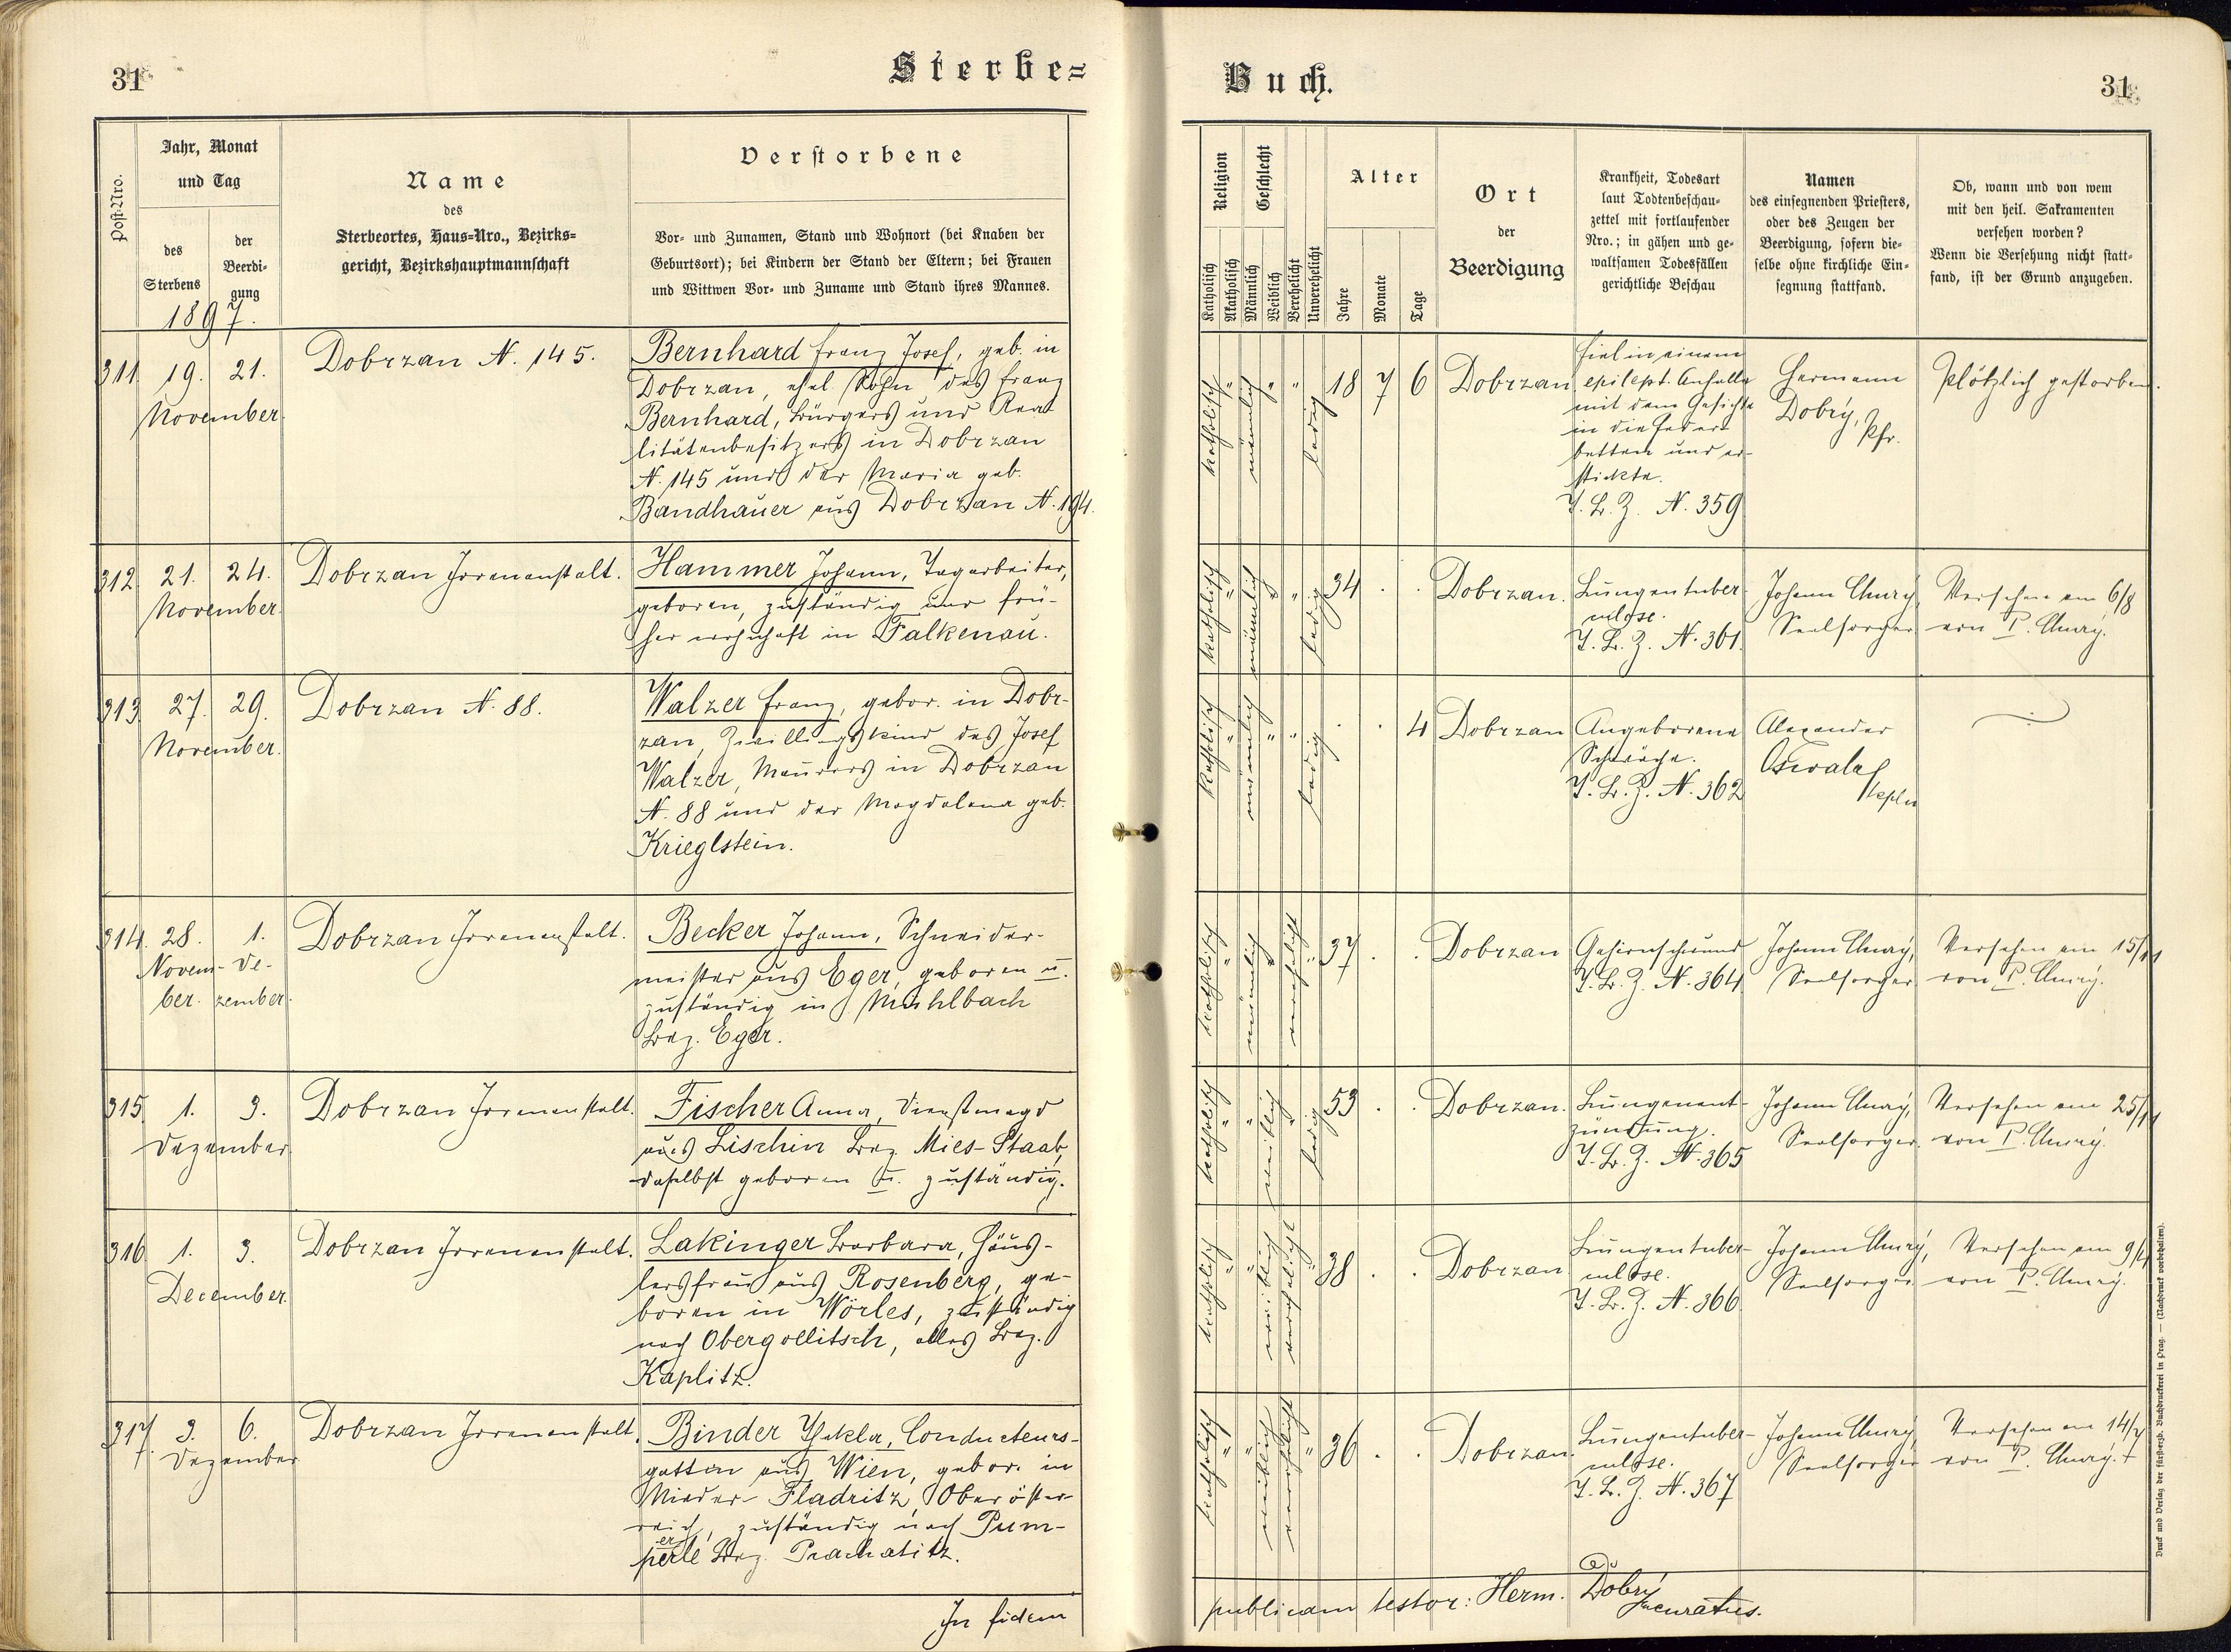 31
Sterbe=
Post-Nro.
Jahr, Monat
und Tag
des
Sterbens
der
Beerdi=
gung
1897.
Name
des
Sterbeortes, Haus=Nro., Bezirks=
gericht, Bezirkshauptmannschaft
Verstorbene
Vor= und Zunamen, Stand und Wohnort (bei Knaben der
Geburtsort); bei Kindern der Stand der Eltern; bei Frauen
und Wittwen Vor= und Zuname und Stand ihres Mannes.
311 19. 21.
November.
Dobrzan N. 145.
Bernhard Franz Josef, geb. in
Dobrzan, ehel. Sohn des Franz
Bernhard, Bürgers und Rea-
litätenbesitzers in Dobrzan
N. 145 und der Maria geb.
Bandhauer aus Dobrzan N. 194.
312 21. 24.
November.
Dobrzan Irrenanstalt.
Hammer Johann, Tagarbeiter,
geboren, zuständig und frü-
her wohnhaft in Falkenau.
313 27. 29.
November.
Dobrzan N. 88.
Walzer Franz, gebor. in Dobr-
zan, Zwillingskind des Josef
Walzer, Maurers in Dobrzan
N. 88 und der Magdalena geb.
Krieglstein.
314. 28. 1.
Novem- De-
ber. zember.
Dobrzan Irrenanstalt.
Becker Johann, Schneider-
meister aus Eger, geboren u.
zuständig in Mühlbach
Bez. Eger.
315. 1. 3.
Dezember
Dobrzan Irrenanstalt.
Fischer Anna, Dienstmagd
aus Lischin Bez. Mies-Staab,
daselbst geboren u. zuständig.
316 1. 3.
December.
Dobrzan Irrenanstalt.
Lakinger Barbara, Häus-
lersfrau aus Rosenberg, ge-
boren in Wörles, zuständig
nach Obergollitsch, alles Bez.
Kaplitz.
317. 3. 6.
Dezember
Dobrzan Irrenanstalt.
Binder Thekla, Conducteurs-
gattin aus Wien, gebor. in
Nieder-Fladritz, Oberöster-
reich, zuständig nach Pum-
er
perle Bez. Prachatitz.
In fidem
Buch.
31
Religion
Katholisch
Akatholisch
Geschlecht
Männlich
Weiblich
Verehelicht
Unverehelicht
Alter
Jahre
Monate
Tage
Ort
der
Beerdigung
Krankheit, Todesart
laut Todtenbeschau=
zettel mit fortlaufender
Nro.; in gähen und ge=
waltsamen Todesfällen
gerichtliche Beschau
Namen
des einsegnenden Priesters,
oder des Zeugen der
Beerdigung, sofern die=
selbe ohne kirchliche Ein=
segnung stattfand.
Ob, wann und von wem
mit den heil. Sakramenten
versehen worden?
Wenn die Versehung nicht statt=
fand, ist der Grund anzugeben.
katholisch " männlich " " ledig
18 7 6 Dobrzan
fiel in einem
epilept. Anfalle
mit dem Gesichte
in die Feder-
betten und er-
stickte.
T. B. Z. N. 359
Hermann
Dobrý,
Pfr.
Plötzlich gestorben.
katholisch " männlich " " ledig
34 . . Dobrzan.
Lungentuber-
culose.
T. B. Z. N. 361.
Johann
Seelsorger
Versehen am 6/8
von P.
katholisch " männlich " " ledig
. . 4 Dobrzan
Angeborene
Schwäche.
T. B. Z. N. 362
Alexander
Oswald
kpln
katholisch " männlich " verehelicht "
37 . . Dobrzan
Gehirnschwund
T. B. Z. N. 364
Johann
Seelsorger
Versehen am 15/11
von P.
katholisch " " weiblich " ledig
53 . . Dobrzan.
Lungenent-
zündung.
T. B. Z. N. 365
Johann
Seelsorger.
Versehen am 25/11
von P.
katholisch " " weiblich verehelicht "
38 . . Dobrzan
Lungentuber-
culose.
T. B. Z. N. 366
Johann
Seelsorger
Versehen am
von P.
katholisch " " weiblich verehelicht "
36 . . Dobrzan.
Lungentuber-
culose.
T. B. Z. N. 367
Johann
Seelsorger
Versehen am 14/7
von P.
publicam testor: Herm. Dobrý
curatus.
Druck und Verlag der fürsterzb. Buchdruckerei in Prag. — (Nachdruck vorbehalten).